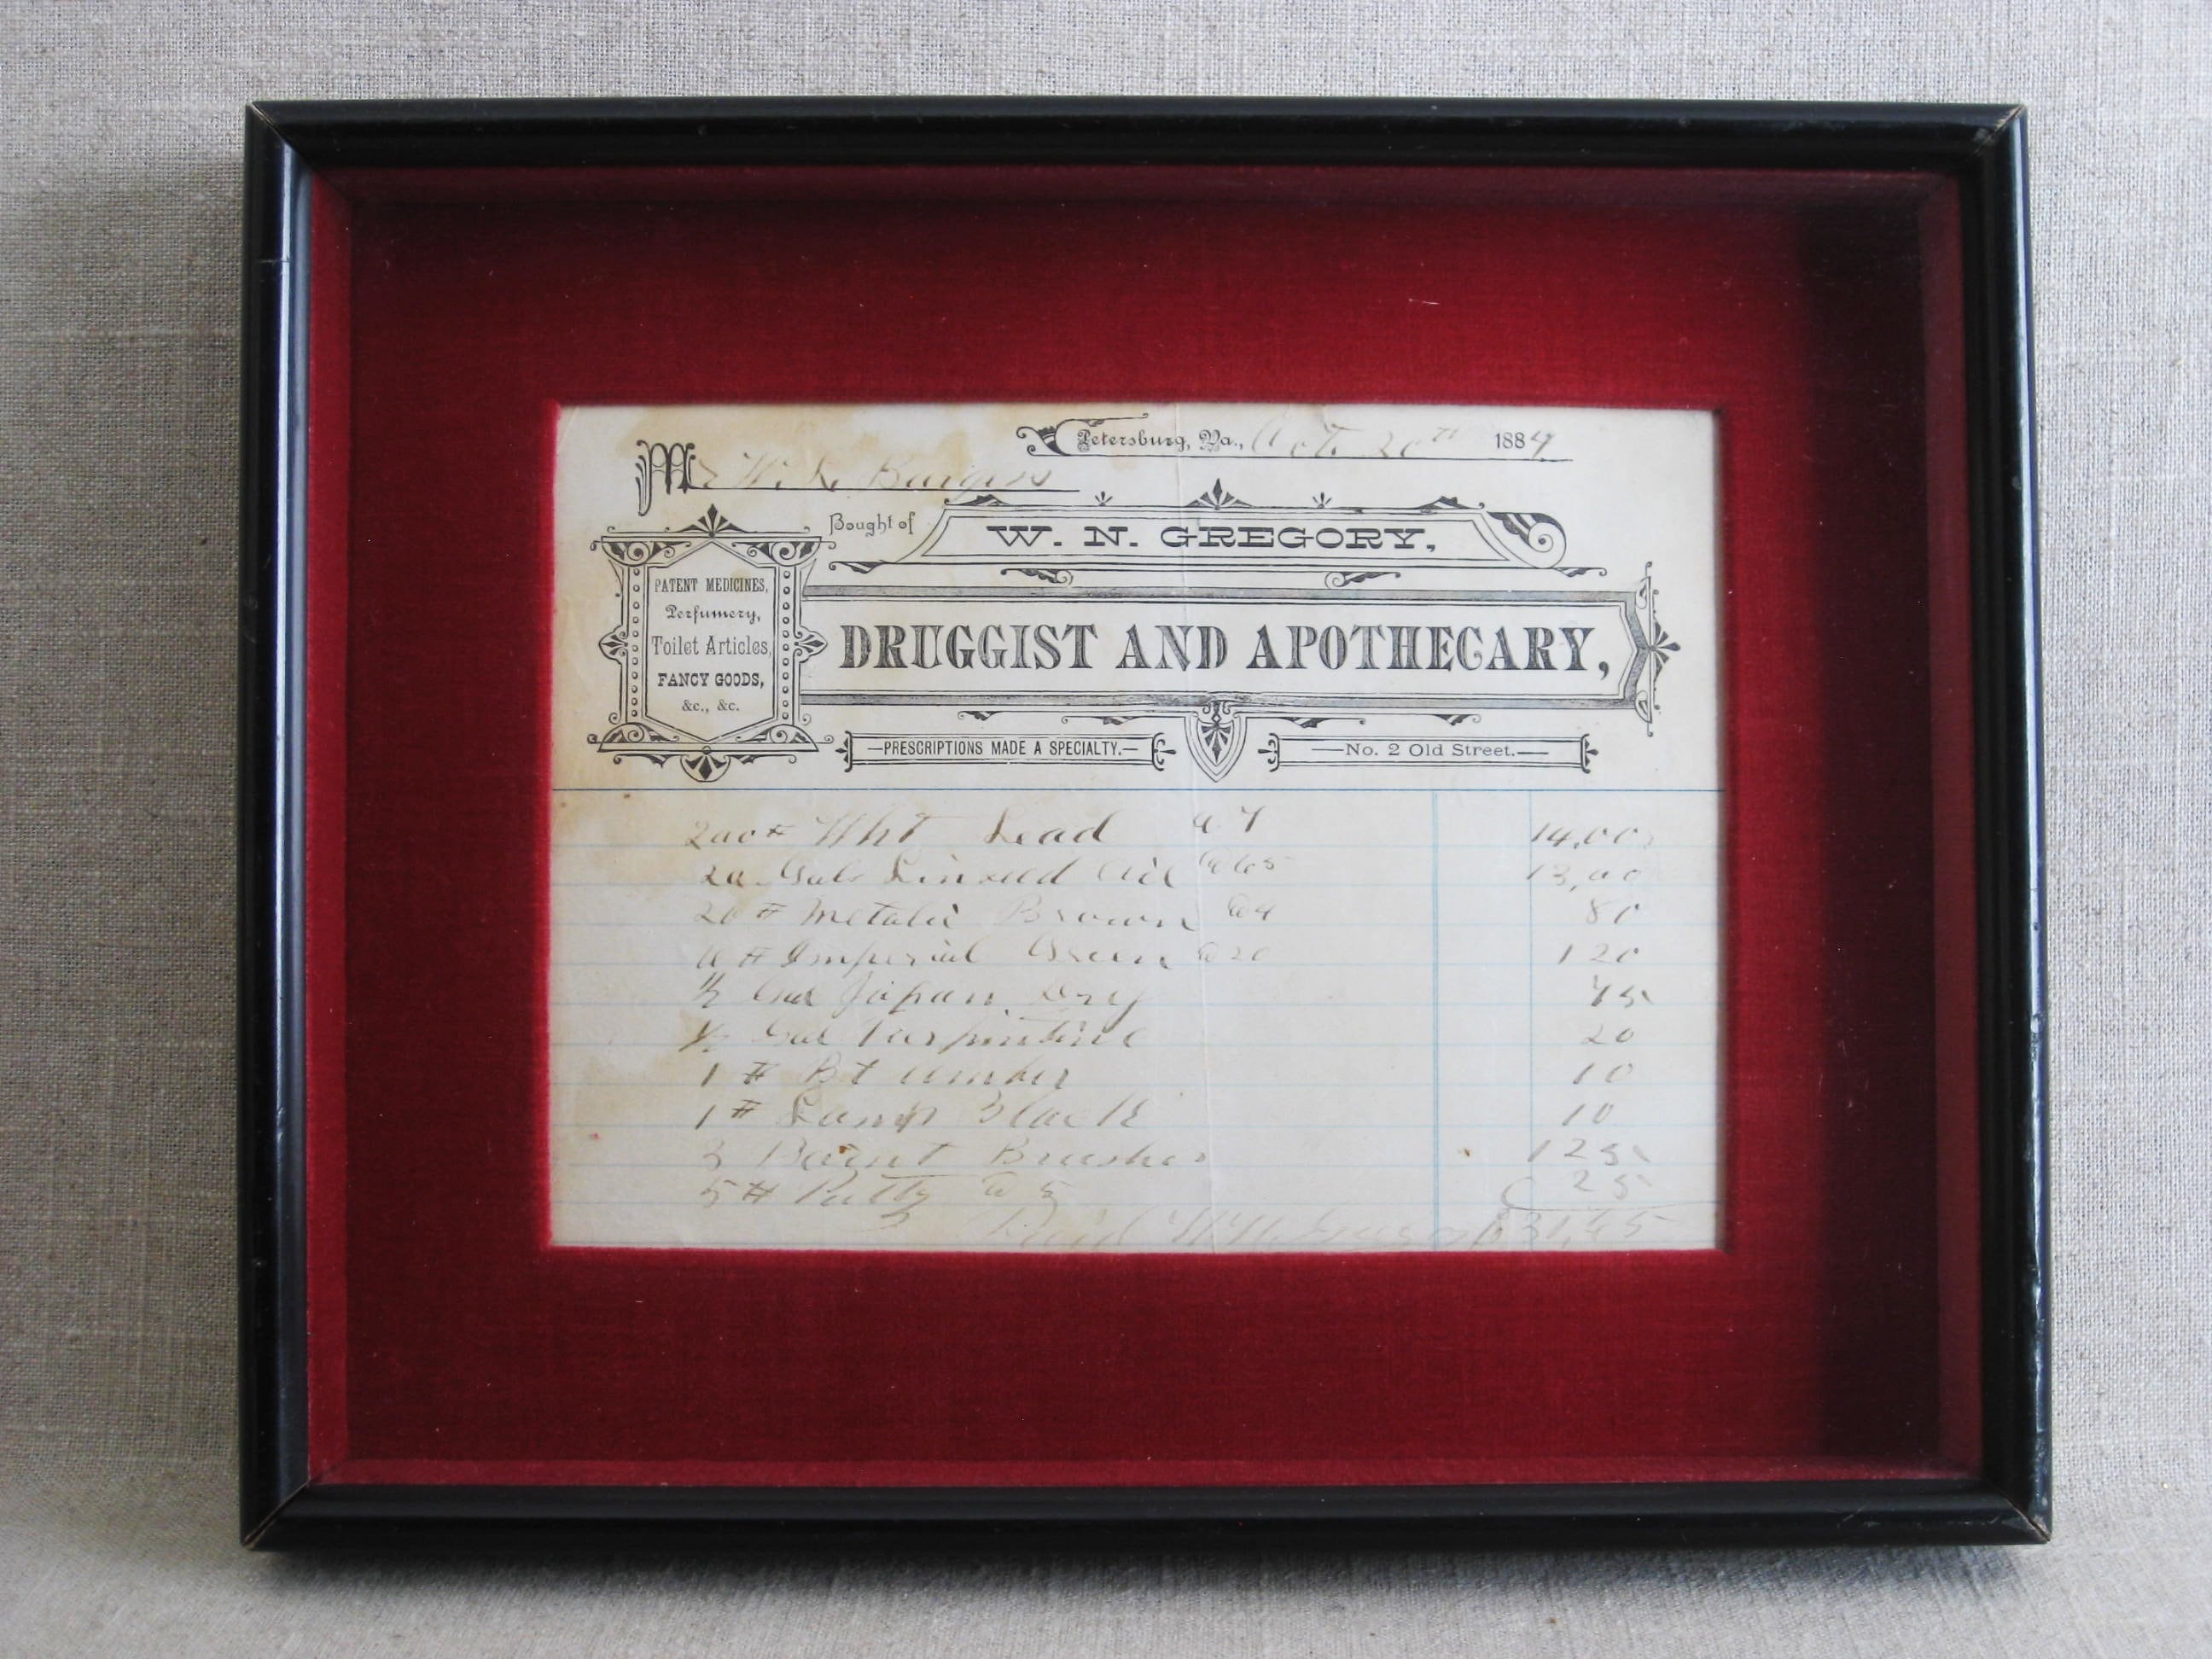 Petersburg, Va., Oct. 20th 1884
Mr W. L. Burgess
Bought of
W. N. GREGORY,
PATENT MEDICINES,
Perfumery,
Toilet Articles,
FANCY GOODS,
&c., &c.
DRUGGIST AND APOTHECARY,
—PRESCRIPTIONS MADE A SPECIALTY.—
—No. 2 Old Street.—
200 # Wht Lead @ 7 14,00
20 Gals Linseed Oil @ 65 13,00
20 # Metalic Brown @ 4 80
# Imperial Green @ 20 1 20
1/2 Gal Japan Dry 75
1/2 Gal Turpintine 20
1 # Bt umber 10
1 # Lamp Black 10
3 Paint Brushes 1 25
5 # Putty @ 5 25
Paid W. N. Gregory 31,65